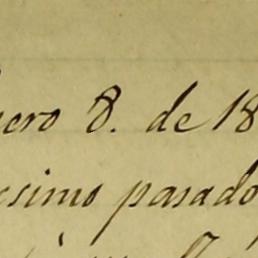 nero 8. de 18
esimo pasado